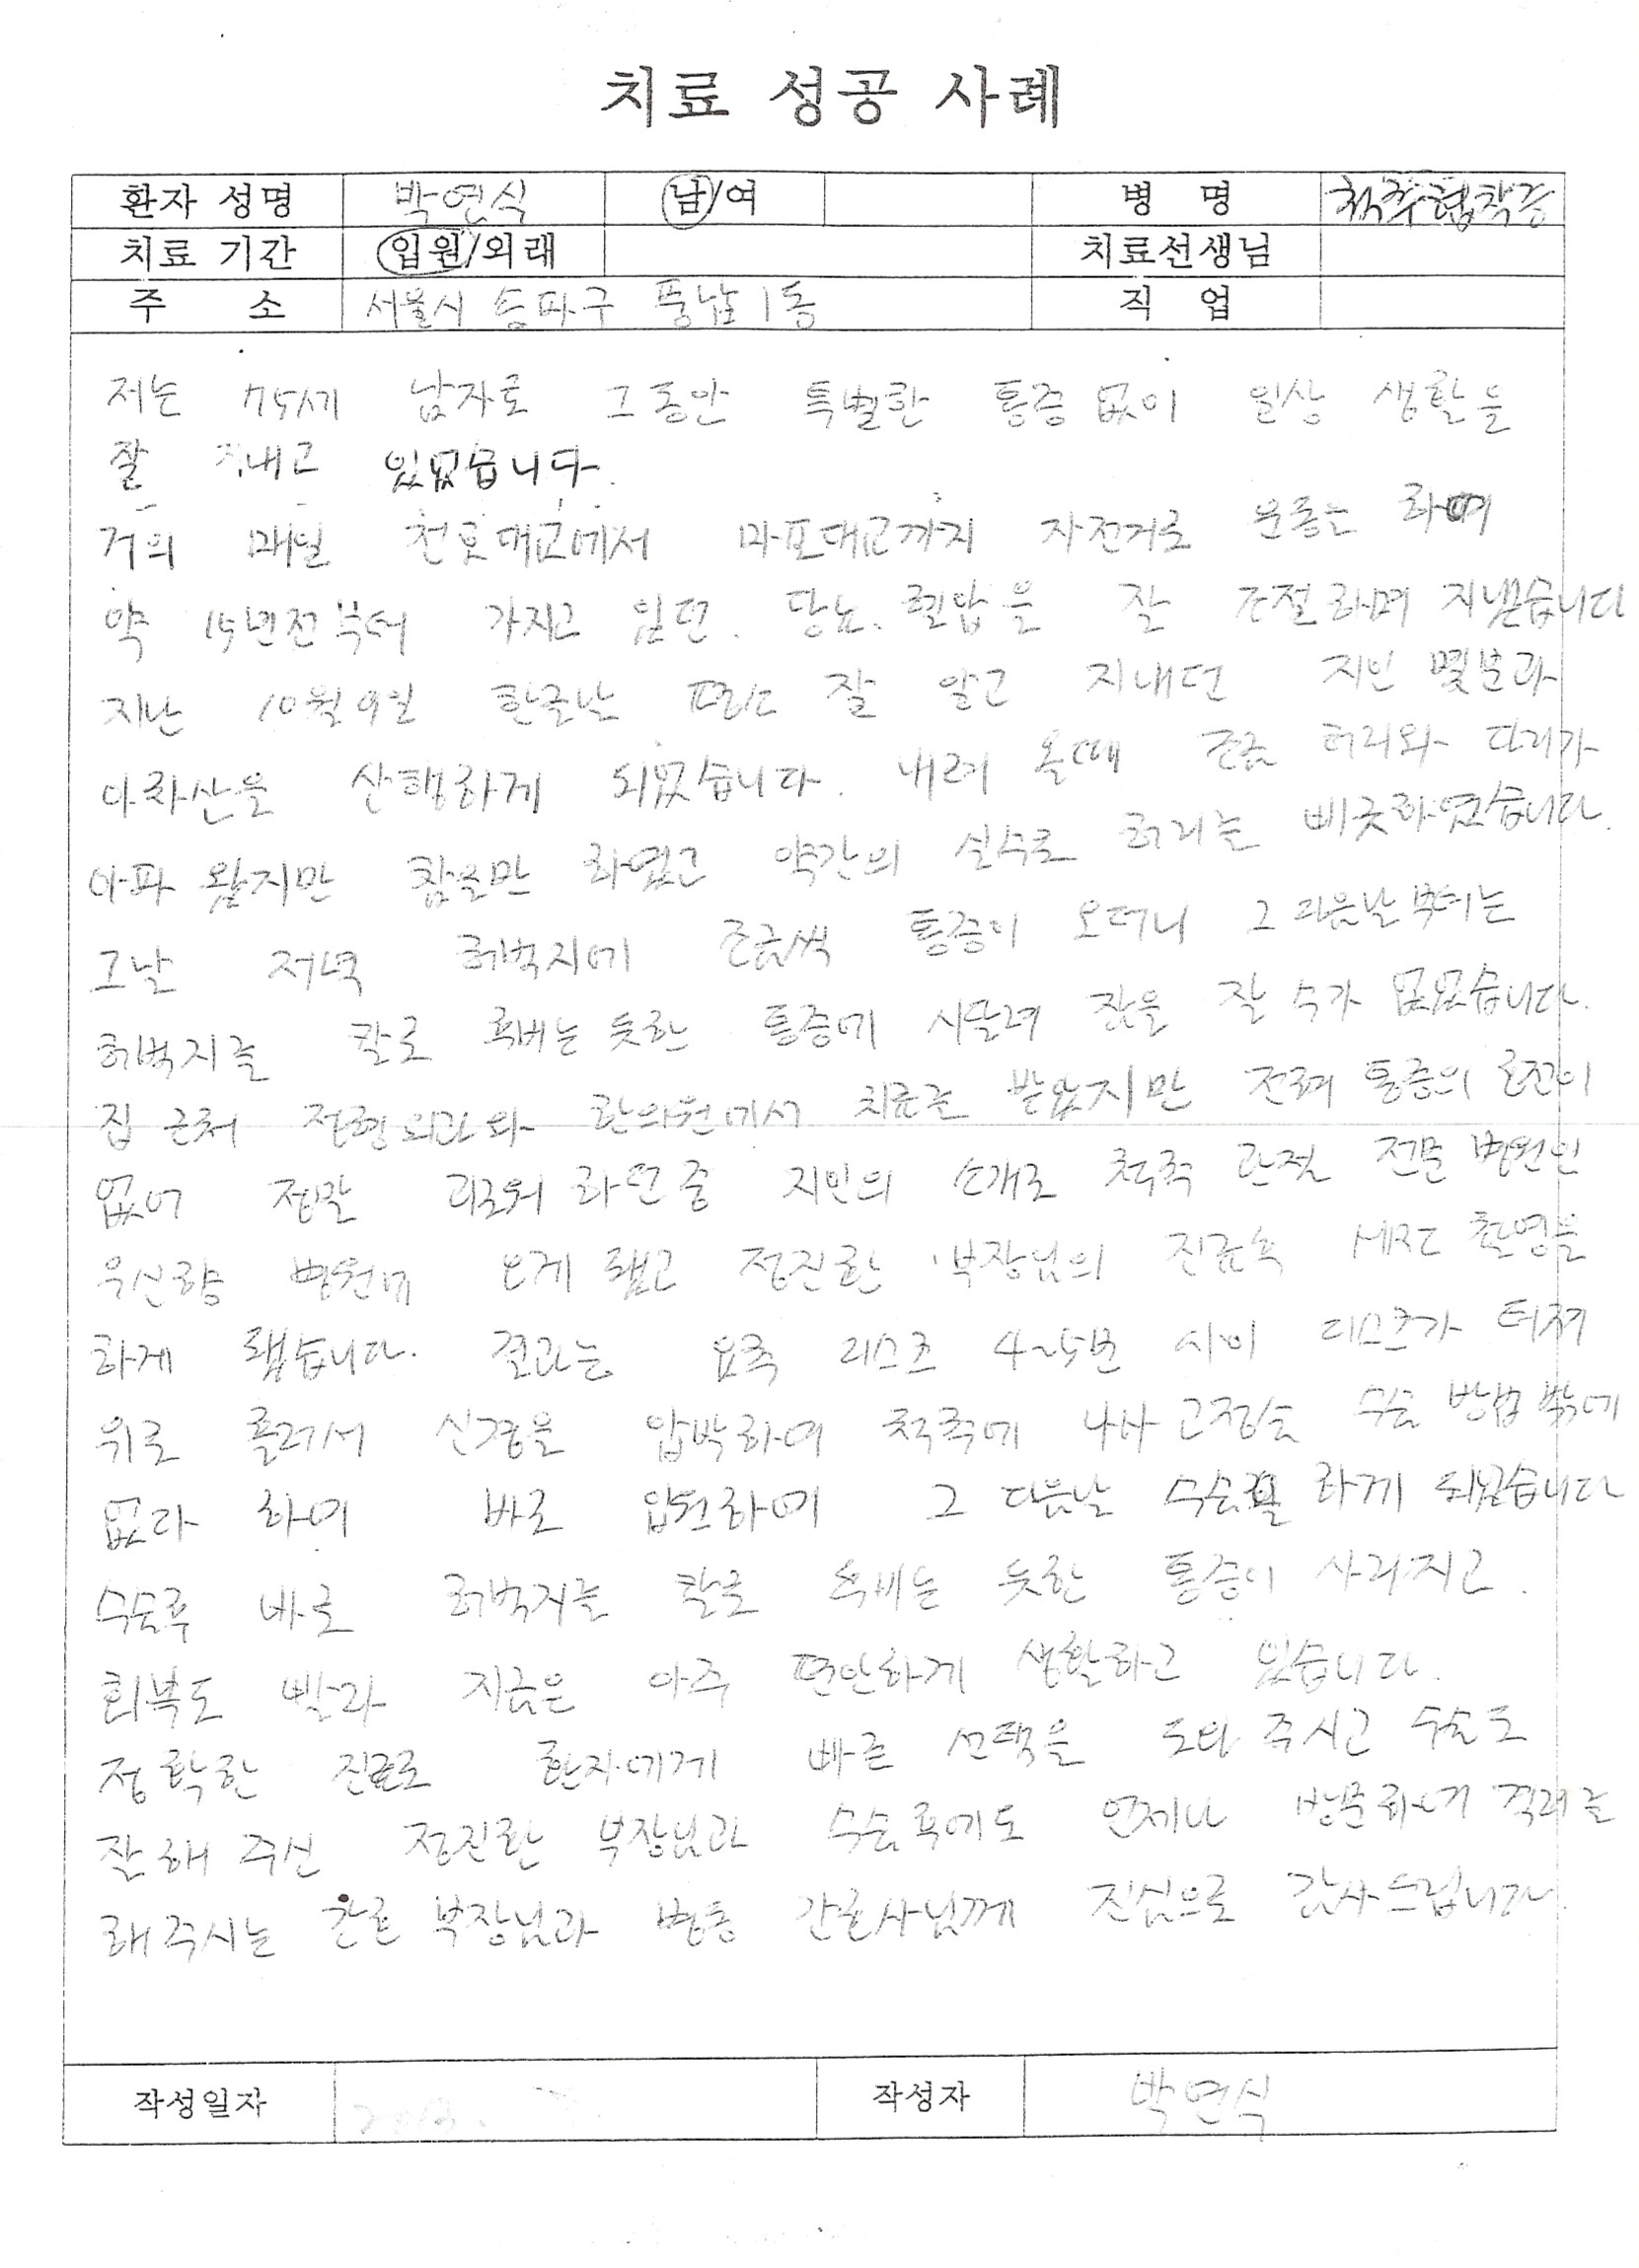 치료 성공 사례
환자 성명 박연식 남/여 병 명 척추협착증
치료 기간 입원/외래 치료선생님
주 소 서울시 송파구 풍납1동 직 업
저는 75세 남자로 그동안 특별한 통증없이 일상 생활을
잘 지내고 있었습니다.
거의 매일 천호대교에서 마포대교까지 자전거로 운동는 하며
약 15년전부터 가지고 있던. 당뇨. 혈압을 잘 조절하며 지냈습니다
지난 10월9일 한글날 평소 잘 알고 지내던 지인 몇분과
아차산을 산행하게 되었습니다. 내려 올때 조금 허리와 다리가
아파 왔지만 참을만 하였고 약간의 실수로 허리를 삐긋하였습니다.
그날 저녁 허벅지에 조금씩 통증이 오더니 그다음날부터는
허벅지를 칼로 후비는 듯한 통증에 시달려 잠을 잘 수가 없었습니다.
집 근처 정형외과와 한의원에서 치료를 받았지만 전혀 통증의 호전이
없어 정말 괴로워 하던중 지인의 소개로 척추 관절 전문 병원인
우신향 병원에 오게 됐고 정진환 부장님의 진료속 MRI 촬영을
하게 됐습니다. 결과는 요추 디스크 4~5번 사이 디스크가 터져
위로 흘러서 신경을 압박하여 척추에 나사 고정술 수술 방법 밖에
없다 하여 바로 입원하여 그 다음날 수술을 하게 되었습니다
수술후 바로 허벅지를 칼로 후비는 듯한 통증이 사라지고.
회복도 빨라 지금은 아주 편안하게 생활하고 있습니다.
정확한 진료로 환자에게 빠른 선택을 도와 주시고 수술도
잘해 주신 정진환 부장님과 수술후에도 언제나 방문하여 격려를
해주시는 간호 부장님과 병동 간호사님께 진심으로 감사드립니다.
작성일자 작성자 박연식